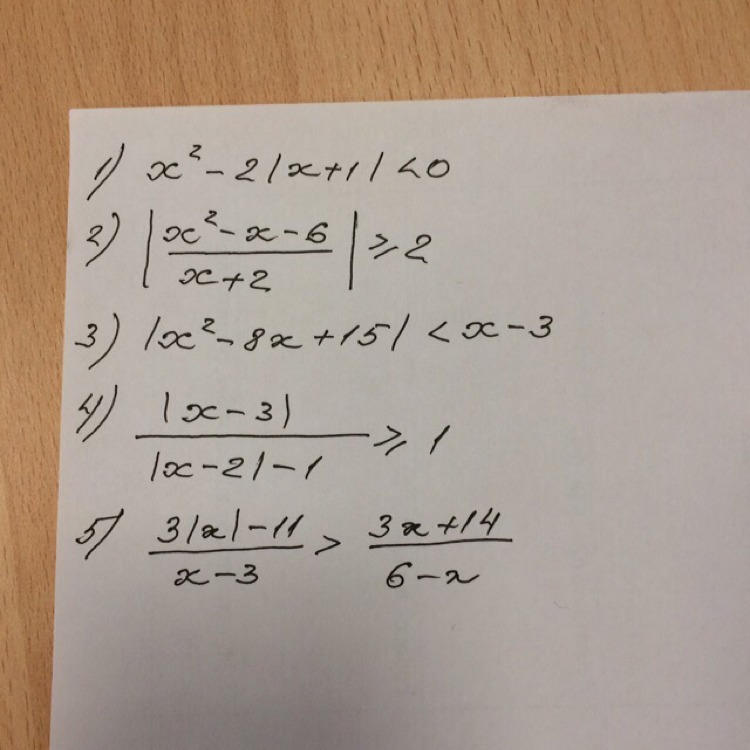 1) x² - 2|x+1| < 0
2) |(x² - x - 6)/(x+2)| ⩾ 2
3) |x² - 8x + 15| < x - 3
4) |x-3|/(|x-2|-1) ⩾ 1
5) (3|x|-11)/(x-3) > (3x+14)/(6-x)